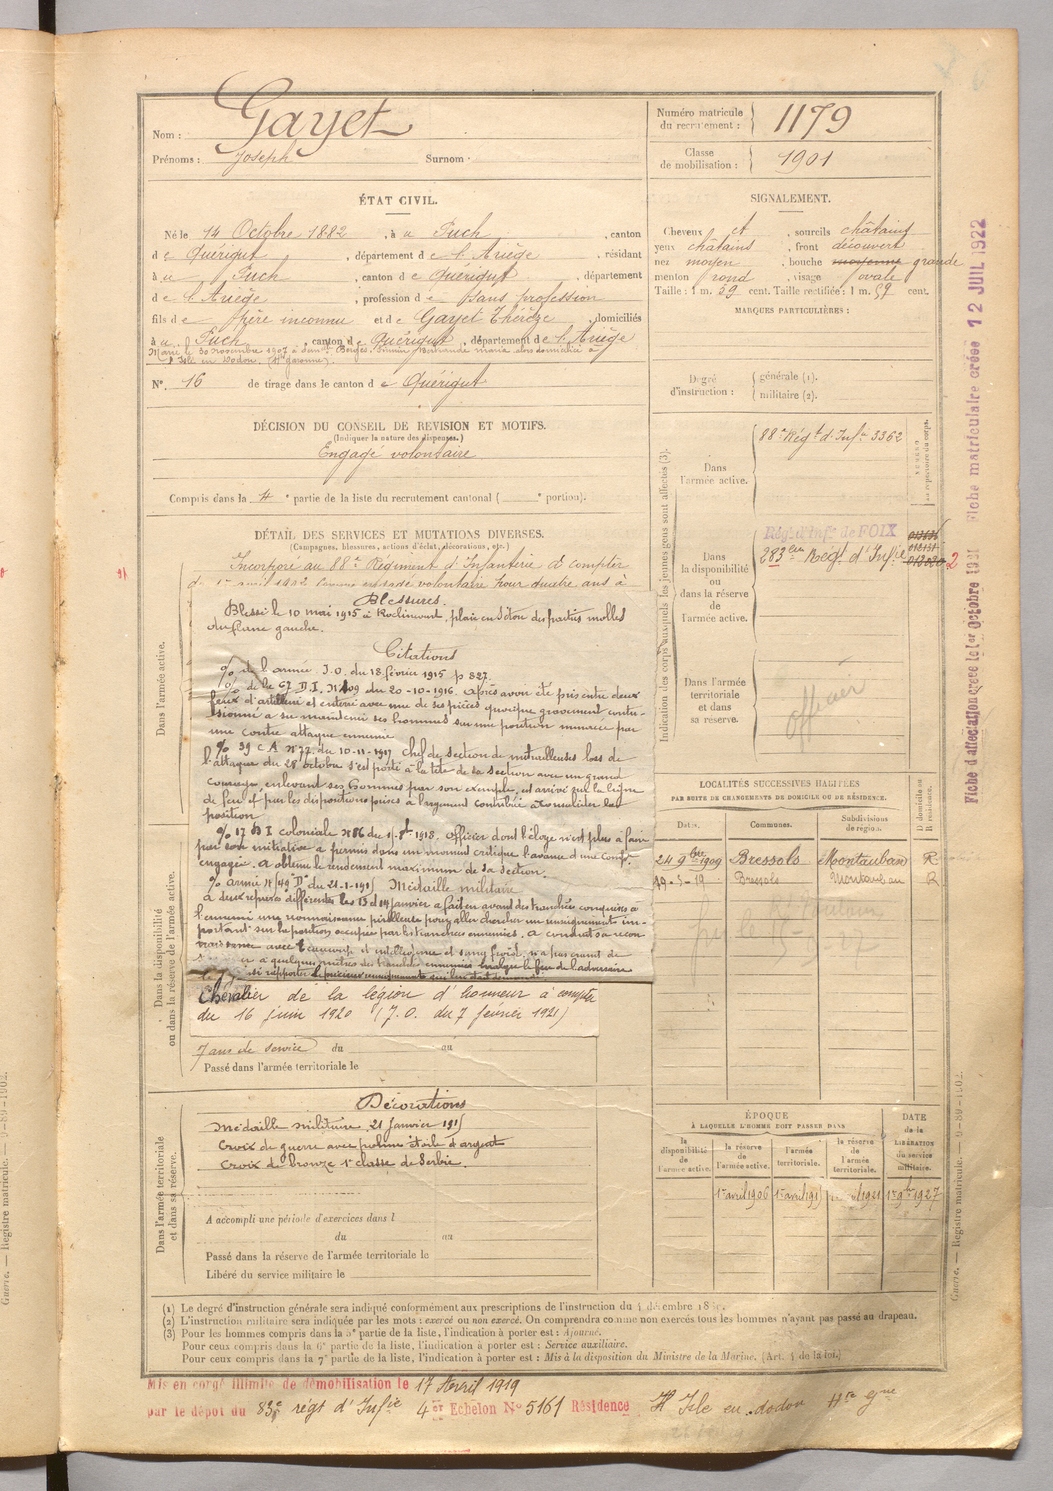 Nom : Gayet
Prénoms : Joseph Surnom :
Numéro matricule du recrutement : 1179
Classe de mobilisation : 1901
ÉTAT CIVIL.
Né le 14 Octobre 1882, à u Puch, canton
d e Quérigut, département d e l'Ariège, résidant
à u Puch, canton d e Quérigut, département
d e l'Ariège, profession d e Sans profession
fils d e père inconnu et d e Gayet Thérèze, domiciliés
à u Puch, canton d e Quérigut, département d e l'Ariège
Marié le 30 novembre 1907 à
l'Isle en Dodon (Hte Garonne).
N° 16 de tirage dans le canton d e Quérigut
SIGNALEMENT.
Cheveux et, sourcils châtains
yeux châtains, front découvert
nez moyen, bouche moyenne grande
menton rond, visage ovale
Taille : 1 m. 59 cent. Taille rectifiée : 1 m. 59 cent.
MARQUES PARTICULIÈRES :
Degré d'instruction : générale (1).
militaire (2).
DÉCISION DU CONSEIL DE REVISION ET MOTIFS.
(Indiquer la nature des dispenses.)
Engagé volontaire
Compris dans la 4e partie de la liste du recrutement cantonal ( e portion).
DÉTAIL DES SERVICES ET MUTATIONS DIVERSES.
(Campagnes, blessures, actions d'éclat, décorations, etc.)
Incorporé au 88e Régiment d'Infanterie à compter
du 1er avril 1902 comme engagé volontaire pour quatre ans à
Blessures.
Blessé le 10 mai 1915 à Roclincourt, plaie en séton des parties molles
du flanc gauche.
Citations
de l'armée J.O. du 18 février 1915 p 827.
de la 67 D.I. N° 109 du 20-10-1916. Après avoir été pris entre deux
feux d'artillerie et enterré avec une de ses pièces quoique gravement contu-
sionné a su maintenir ses hommes sur une position menacée par
une contre attaque ennemie
% 39 C A N° 77 du 10-11-1917 Chef de section de mitrailleuses lors de
l'attaque du 25 octobre s'est porté à la tête de sa section avec un grand
courage, enlevant ses hommes par son exemple, est arrivé sur la ligne
de feu et par les dispositions prises a largement contribué à consolider la
position
% 17 D I coloniale N° 86 du 1-8-1918. Officier dont l'éloge n'est plus à faire
par son initiative a permis dans un moment critique l'avance d'une
engagée. A obtenu le rendement maximum de sa section.
% armée N° 149 D du 21-1-1915 Médaille militaire
A deux reprises différentes les 13 et 14 janvier a fait en avant des tranchées conquises à
l'ennemi une reconnaissance périlleuse pour aller chercher un renseignement im-
portant sur la position occupée par les tranchées ennemies. A conduit sa recon-
naissance avec beaucoup d'intelligence et sang froid, n'a pas craint de
à quelques mètres des tranchées ennemies malgré le feu de l'adversaire
si rapporter le précieux renseignement
Chevalier de la légion d'honneur à compter
du 16 juin 1920 (J.O. du 7 février 1921)
7 ans de service du au
Passé dans l'armée territoriale le
Décorations
Médaille militaire 21 Janvier 1915
Croix de guerre avec palme étoile d'argent
Croix de bronze 1e classe de Serbie.
A accompli une période d'exercices dans l
du au
Passé dans la réserve de l'armée territoriale le
Libéré du service militaire le
Dans l'armée active.
Dans la disponibilité ou dans la réserve de l'armée active.
Dans l'armée territoriale et dans sa réserve.
Indication des corps auxquels les jeunes gens sont affectés (3).
NUMÉRO au répertoire du corps.
Dans l'armée active.
88e Régt d'Infie 3362
Dans la disponibilité ou dans la réserve de l'armée active.
Régt d'Infie de FOIX
283e Régt d'Infie
Dans l'armée territoriale et dans sa réserve.
officier
LOCALITÉS SUCCESSIVES HABITÉES
PAR SUITE DE CHANGEMENTS DE DOMICILE OU DE RÉSIDENCE.
Dates. Communes. Subdivisions de région. D domicile ou R résidence.
24 9bre 1909 Bressols Montauban R
19-5-19 Bressols Montauban R
ÉPOQUE
À LAQUELLE L'HOMME DOIT PASSER DANS
la disponibilité de l'armée active. la réserve de l'armée active. l'armée territoriale. la réserve de l'armée territoriale. DATE de la LIBÉRATION du service militaire.
1er avril 1906 1er avril 1915 1921 1er 9bre 1927
(1) Le degré d'instruction générale sera indiqué conformément aux prescriptions de l'instruction du 4 décembre
(2) L'instruction militaire sera indiquée par les mots : exercé ou non exercé. On comprendra comme non exercés tous les hommes n'ayant pas passé au drapeau.
(3) Pour les hommes compris dans la 5e partie de la liste, l'indication à porter est : Ajourné.
Pour ceux compris dans la 6e partie de la liste, l'indication à porter est : Service auxiliaire.
Pour ceux compris dans la 7e partie de la liste, l'indication à porter est : Mis à la disposition du Ministre de la Marine. (Art. 4 de la loi.)
Mis en congé illimité de démobilisation le 17 Avril 1919
par le dépôt du 83e régt d'Infie 4er Echelon N° 5161 Résidence H Isle en dodon Hte Gne
Fiche d'affectation créée le 1er Octobre 1921 Fiche matriculaire créée 12 JUIL 1922
Guerre. — Registre matricule. — 9-89-1902.
Guerre. — Registre matricule. — 9-89-1902.